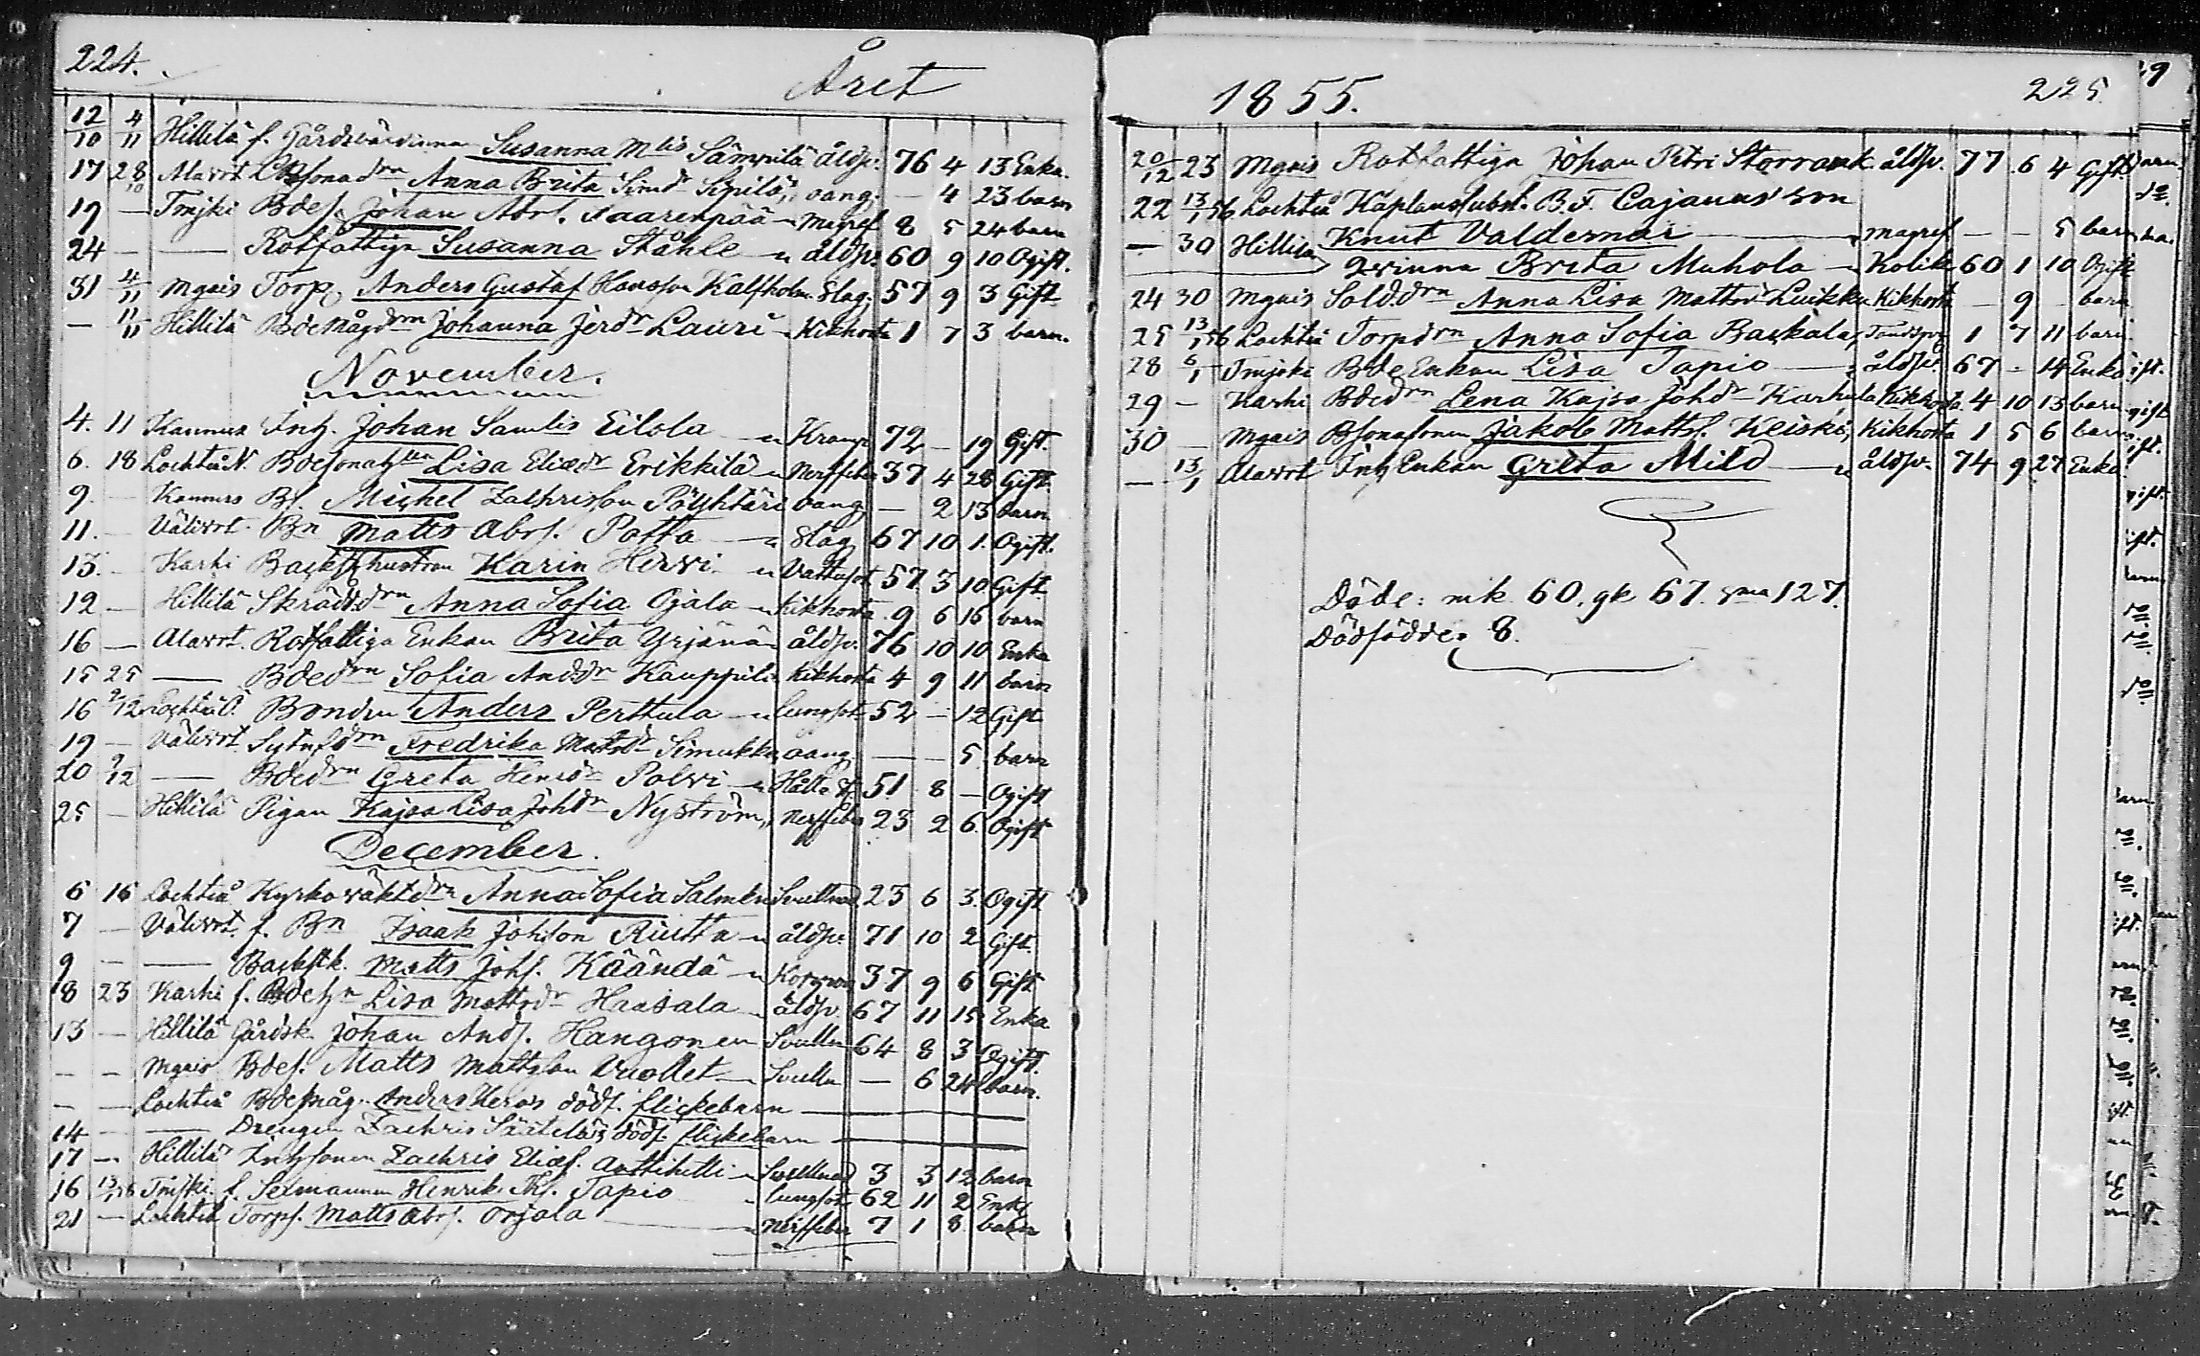 224.
Året
12/10 4/11 Hillilä f. Gårdsvärdinna Susanna Mlis Sämpilä åldsv: 76 4 13 Enka.
17 28/10 Alavrt Anna Brita Simdr Sipilä, oang. — 4 23 barn
19 — Tmjki Bdes. Johan Abrs. Saarenpää magref 8 5 24 barn
24 — — Rotfattiga Susanna Ståhle åldsv: 60 9 10 Ogift.
31 4/11 Mgais Torp. Anders Gustaf Hansson Kalfholm Slag. 57 9 3 Gift
— 11/11 Hillilä Bdemågdrn Johanna Jerdr Lauri Kikhosta 1 7 3 barn.
November.
4. 11 Kannus Inh. Johan Samlis Eilola Kramp 72 — 19 Gift.
6. 18 Lochteå N. Bdesonah Lisa Eliædr Erikkilä Nerffeber 37 4 28 Gift
9. — Kannus Bs. Michel Zachrisson Pöyhtäri oang. — 2 13 barn
11. — Välivrt Bn Matts Abrs. Potta Slag 67 10 1. Ogift.
13. — Karhi Backsthustrun Karin Hirvi Vattusot 57 3 10 Gift.
12 — Hillilä Skrädd.drn Anna Sofia Ojala Kikhosta 9 6 16 barn
16 — Alavrt. Rotfattiga Enkan Brita Yrjänä åldsv. 76 10 10 Enka
15 25 — Bdedrn Sofia Anddr Kauppila Kikhosta 4 9 11 barn
16 2/12 Lochteå Ö. Bonden Anders Perttula lungsot 52 — 12 Gift
19 — Välivrt Sytnsdrn Fredrika Mattsdr Simukka, oang — — 5. barn
20 2/12 — Bdedrn Greta Henrsdr Polvi Håll o. st. 51 8 — Ogift
25 — Hillilä Pigan Kajsa Lisa Johdr Nyström, Nerffeber 23 2 6. Ogift
December.
6 16 Lochteå Kyrkovaktdrn Anna Sofia Salmela Svullnad 23 6 3. Ogift
7 — Välivrt. f. Bn Isaak Johsson Riutta åldsv: 71 10 2 Gift.
9 — — Backstk. Matts Johs. Käändä 37 9 6 Gift
8 23 Karhi f. Bdeh Lisa Mattsdr Haasala åldsv. 67 11 15 Enka
13 — Hillilä Gårdsk. Johan Ands. Hangonen Svulln 64 8 3 Ogift.
— — Mgais Bdes. Matts Mattsson Vuollet Svulln — 6 24 barn.
— — Lochteå Bdesmåg. Anders Heros dödf. flickebarn
14 — — Drengen Zachris Säätelä's dödf. flickebarn
17 — Hillilä Inhsonen Zachris Eliæs. Anttihilli Svullnad 3 3 12 barn
16 13/1 56 Tmjki f. Sexmannen Henrik Ths. Tapio lungsot 62 11 2 Enkl
21 — Lochteå Torps. Matts Abrs. Orjala Nerffeber 7 1 8 barn
1855.
225.
20/12 23 Mgais Rotfattiga Johan Petri Storrank åldsv. 77 6 4 Gift
22 13/1 56 Lochteå Kaplanssubst. B. F. Cajanus' son
Knut Valdemar magref — — 5 barn
— 30 Hillilä qvinna Brita Muhola Kolik 60 1 10 Ogift
24 30 Mgais Sold.drn Anna Lisa Mattsdr Luikku Kikhosta — 9 — barn
25 13/1 56 Lochteå Torpdrn Anna Sofia Baskala, Tandspr 1 7 11 barn
28 6/1 Tmjoki Bde Enkan Lisa Tapio åldsv. 67 — 14 Enka
29 — Karhi Bdedrn Lena Kajsa Johdr Karhula Kikhosta 4 10 13 barn
30 — Mgais Bsonasonen Jakob Matts. Keiski, Kikhosta 1 5 6 barn
— 13/1 Alavrt Inh Enkan Greta Mild åldsv. 74 9 27 Enka
Döde: mk 60, qk 67. sma 127.
Dödfödde: 8.